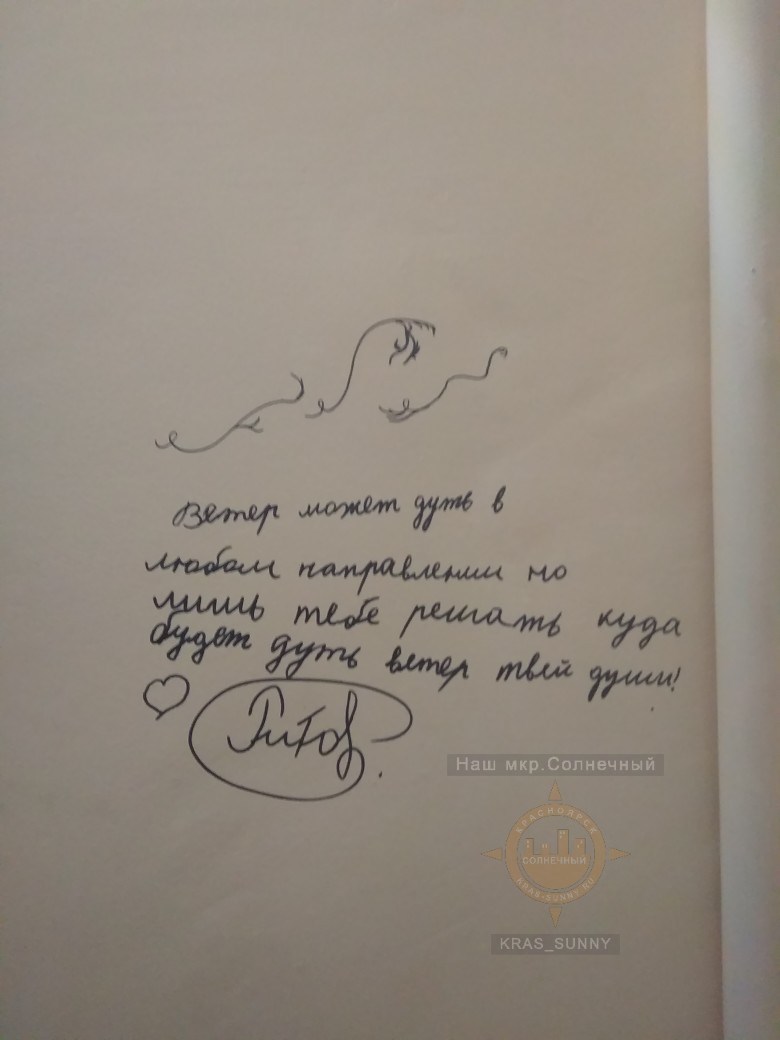 Ветер может дуть в
любом направлении но
лишь тебе решать куда
будет дуть ветер твей души!
Наш мкр.Солнечный
КРАСНОЯРСК
СОЛНЕЧНЫЙ
KRAS-SUNNY.RU
KRAS_SUNNY